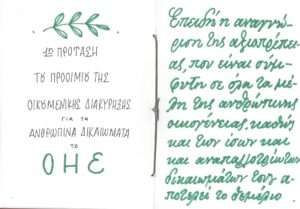 1η ΠΡΟΤΑΣΗ
ΤΟΥ ΠΡΟΟΙΜΙΟΥ ΤΗΣ
ΟΙΚΟΥΜΕΝΙΚΗΣ ΔΙΑΚΥΡΗΞΗΣ
ΓΙΑ ΤΑ
ΑΝΘΡΩΠΙΝΑ ΔΙΚΑΙΩΜΑΤΑ
ΤΟΥ
ΟΗΕ
Επειδή η αναγνώ-
ριση της αξιοπρέπει-
ας, που είναι σύμ-
φυτη σε όλα τα μέ-
λη της ανθρώπινης
οικογένειας, καθώς
και των ίσων και
και αναπαλλοτρίωτων
δικαιωμάτων τους α-
ποτελεί το θεμέλιο